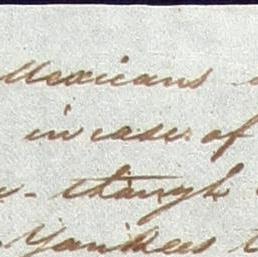 Mexicans
in case of
though
Yankees